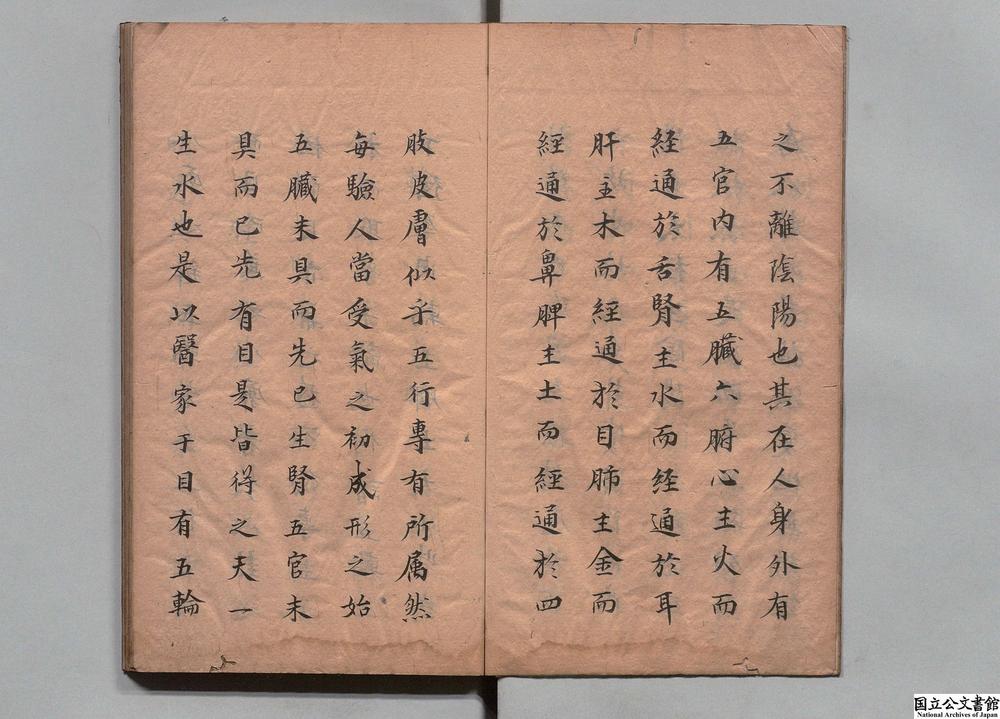 之不離陰陽也其在人身外有
五官内有五臓六腑心主火而
経通於舌腎主水而经通於耳
肝主木而經通於目肺主金而
經通於鼻脾主土而經通於四
肢皮膚似乎五行專有所属然
每驗人當受氣之初成形之始
五臓未具而先已生腎五官未
具而已先有目是皆得之天一
生水也是以醫家于目有五輪
国立公文書館
National Archives of Japan